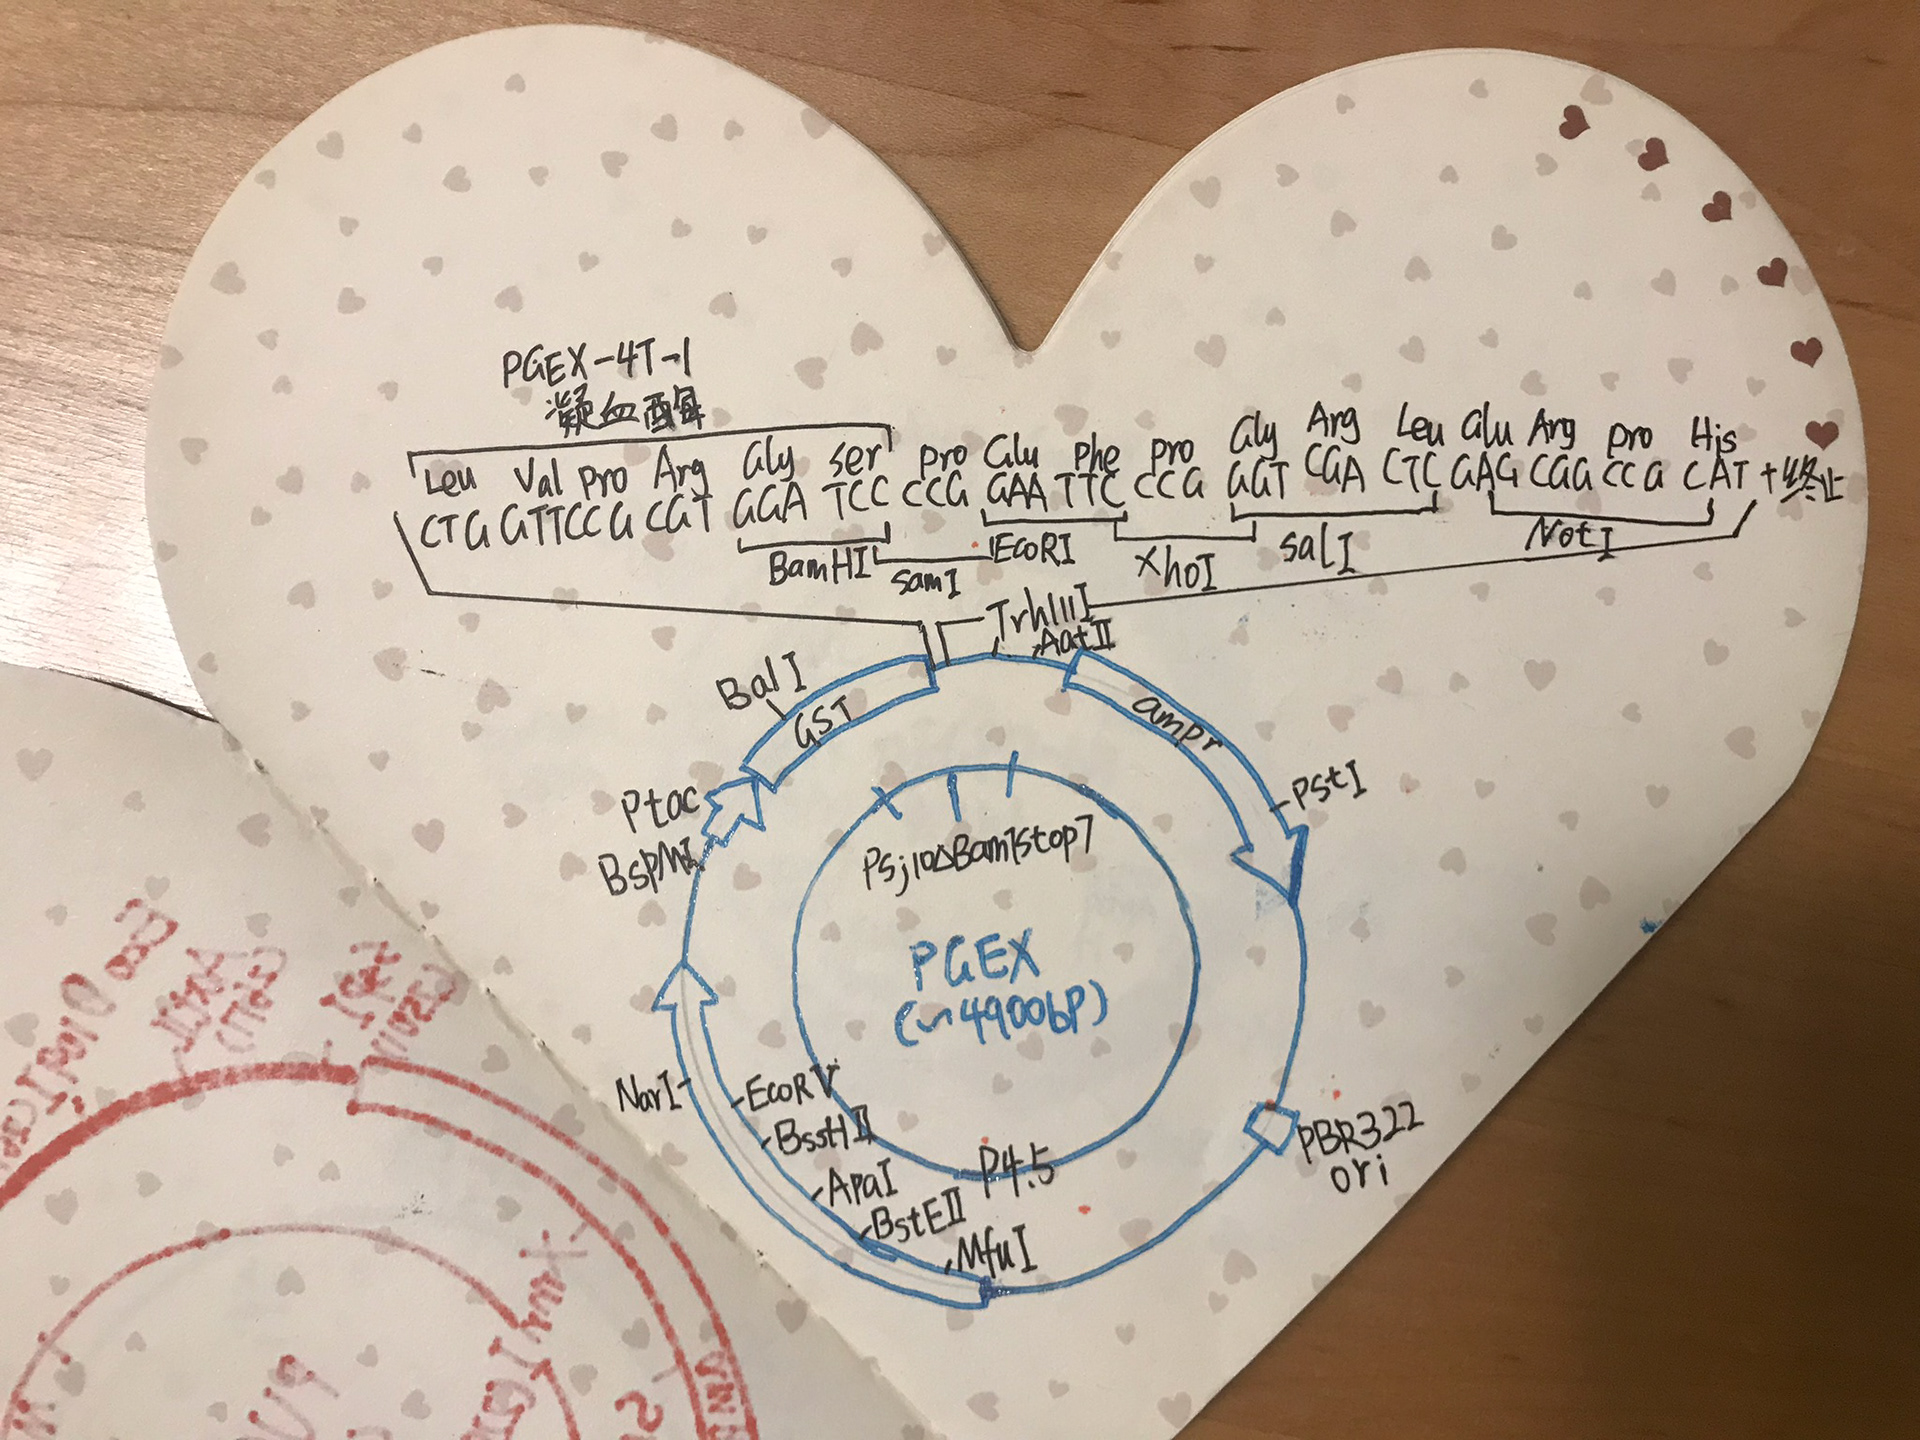 PGEX-4T-1
凝血酶
Leu Val Pro Arg Gly Ser Pro Glu Phe Pro Gly Arg Leu Glu Arg Pro His
CTG GTT CCG CGT GGA TCC CCG GAA TTC CCG GGT CGA CTC GAG CGG CCG CAT +终止
BamHI
SamI
EcoRI
XhoI
SalI
NotI
Trh111I
AatII
BalI
GST
ampr
Ptac
PstI
BspMI
Psj10ΔBam7stop7
PGEX
(~4900bP)
NarI
EcoRV
BssHII
ApaI
BstEII
MfuI
P4.5
PBR322
ori